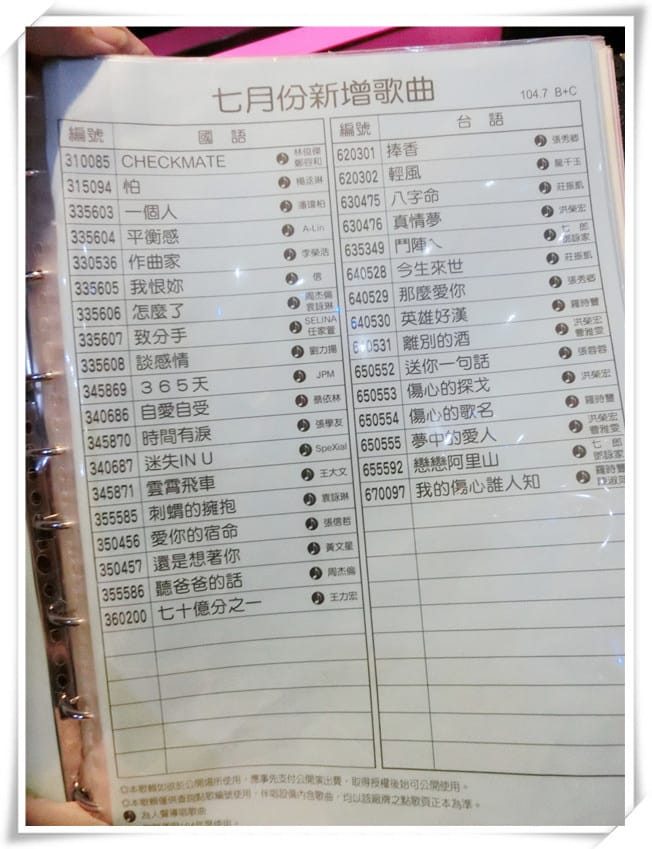 七月份新增歌曲
104.7 B+C
編號 國語
310085 CHECKMATE 林俊傑 鄭容和
315094 怕 楊丞琳
335603 一個人 潘瑋柏
335604 平衡感 A-Lin
330536 作曲家 李榮浩
335605 我恨妳 信
335606 怎麼了 周杰倫 袁詠琳
335607 致分手 SELINA 任家萱
335608 談感情 劉力揚
345869 365天 JPM
340686 自愛自受 蔡依林
345870 時間有淚 張學友
340687 迷失IN U SpeXial
345871 雲霄飛車 王大文
355585 刺蝟的擁抱 袁詠琳
350456 愛你的宿命 張信哲
350457 還是想著你 黃文星
355586 聽爸爸的話 周杰倫
360200 七十億分之一 王力宏
編號 台語
620301 捧香 張秀卿
620302 輕風 龍千玉
630475 八字命 莊振凱
630476 真情夢 洪榮宏
635349 鬥陣ㄟ 七郎 鄧詠家
640528 今生來世 莊振凱
640529 那麼愛你 張秀卿
640530 英雄好漢 羅時豐
640531 離別的酒 洪榮宏 曹雅雯
650552 送你一句話 張蓉蓉
650553 傷心的探戈 洪榮宏
650554 傷心的歌名 羅時豐
650555 夢中的愛人 洪榮宏 曹雅雯
655592 戀戀阿里山 七郎 鄧詠家
670097 我的傷心誰人知 羅時豐
◎本歌輯如欲於公開場所使用，應事先支付公開演出費，取得授權後始可公開使用。
◎本歌輯僅供查詢點歌編號使用，伴唱設備內含歌曲，均以該廠牌之點歌頁正本為準。
為人聲導唱歌曲